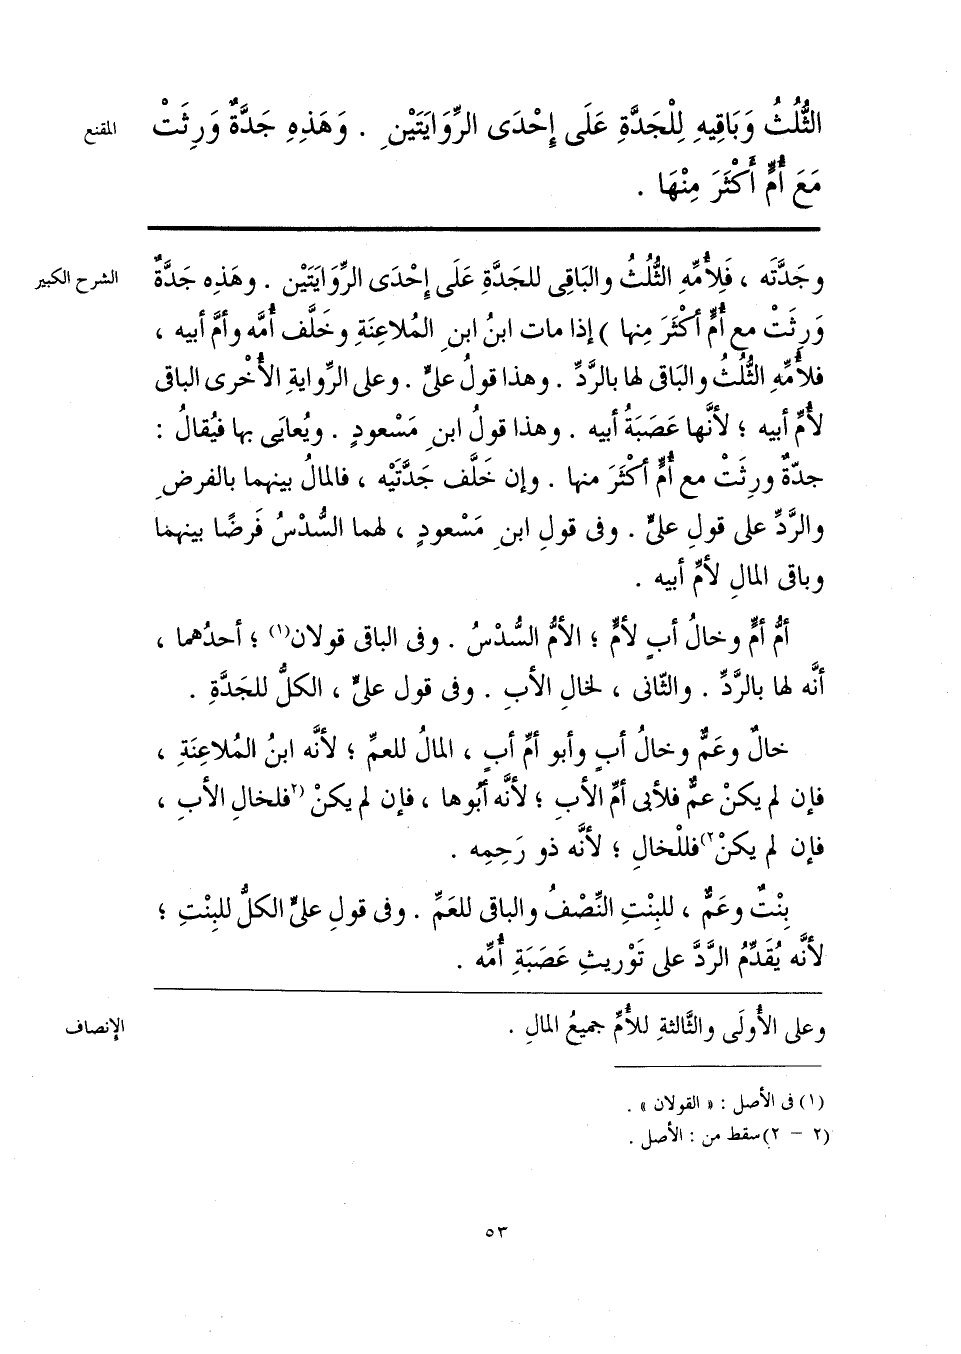 المقنع
الثُّلُثُ وَبَاقِيهِ لِلْجَدَّةِ عَلَى إِحْدَى الرِّوَايَتَيْنِ . وَهَذِهِ جَدَّةٌ وَرِثَتْ
مَعَ أُمٍّ أَكْثَرَ مِنْهَا .
الشرح الكبير
وجَدَّتَه ، فَلِأُمِّهِ الثُّلُثُ والبَاقِى للجَدَّةِ عَلَى إِحْدَى الرِّوَايَتَيْنِ . وهَذِه جَدَّةٌ
وَرِثَتْ مع أُمٍّ أكثَرَ مِنها ) إذا مات ابنُ ابنِ المُلاعِنَةِ وخَلَّف أُمَّه وأمَّ أبيه ،
فلأُمِّهِ الثُّلُثُ والبَاقى لها بالرَّدِّ . وهذا قولُ علىٍّ . وعلى الرِّوايةِ الأُخْرى الباقى
لأُمِّ أبيه ؛ لأنَّها عَصَبَةُ أبيه . وهذا قولُ ابنِ مَسْعودٍ . ويُعايَى بها فيُقالُ :
جدّةٌ ورِثَتْ مع أُمٍّ أكْثَرَ منها . وإن خَلَّف جَدَّتَيْه ، فالمالُ بينهما بالفرضِ
والرَّدِّ على قولِ علىٍّ . وفى قولِ ابنِ مَسْعودٍ ، لهما السُّدْسُ فَرضًا بينهما
وباقى المالِ لأمِّ أبيه .
أمُّ أمٍّ وخالُ أبٍ لأمٍّ ؛ الأمُّ السُّدْسُ . وفى الباقى قولان(١) ؛ أحدُهما ،
أنَّه لها بالرَّدِّ . والثّانى ، لخالِ الأبِ . وفى قول علىٍّ ، الكلُّ للجَدَّةِ .
خالٌ وعَمٌّ وخالُ أبٍ وأبو أمِّ أبٍ ، المالُ للعمِّ ؛ لأنَّه ابنُ المُلاعِنَةِ ،
فإن لم يكنْ عمٌّ فلأبى أمِّ الأبِ ؛ لأنَّه أبُوها ، فإن لم يكنْ (٢فلخالِ الأبِ ،
فإن لم يكنْ٢) فللْخالِ ؛ لأنَّه ذو رَحِمِه .
بِنْتٌ وعَمٌّ ، للبِنْتِ النِّصْفُ والباقى للعَمِّ . وفى قولِ علىٍّ الكلُّ للبِنْتِ ؛
لأنَّه يُقَدِّمُ الرَّدَّ على تَوْريثِ عَصَبَةِ أُمِّه .
الإنصاف
وعلى الأُولَى والثَّالثةِ للأُمِّ جميعُ المالِ .
(١) فى الأصل : « القولان » .
(٢ - ٢) سقط من : الأصل .
٥٣